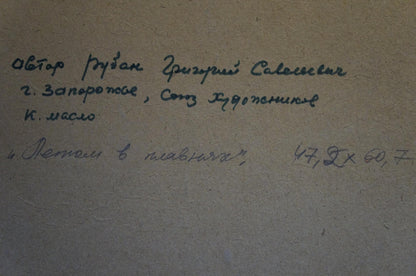 автор Рубан Григорий Савельевич
г. Запорожье, Союз художников
К. масло
"Летом в плавнях", 47,2 х 60,7